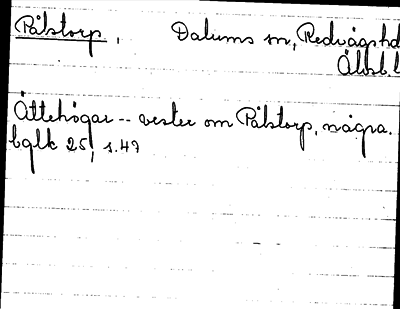 Pålstorp, Dalums sn, Redvägs hd
Älvsb. l
Ättehögar -- vester om Pålstorp, några.
bglk 25, s. 49